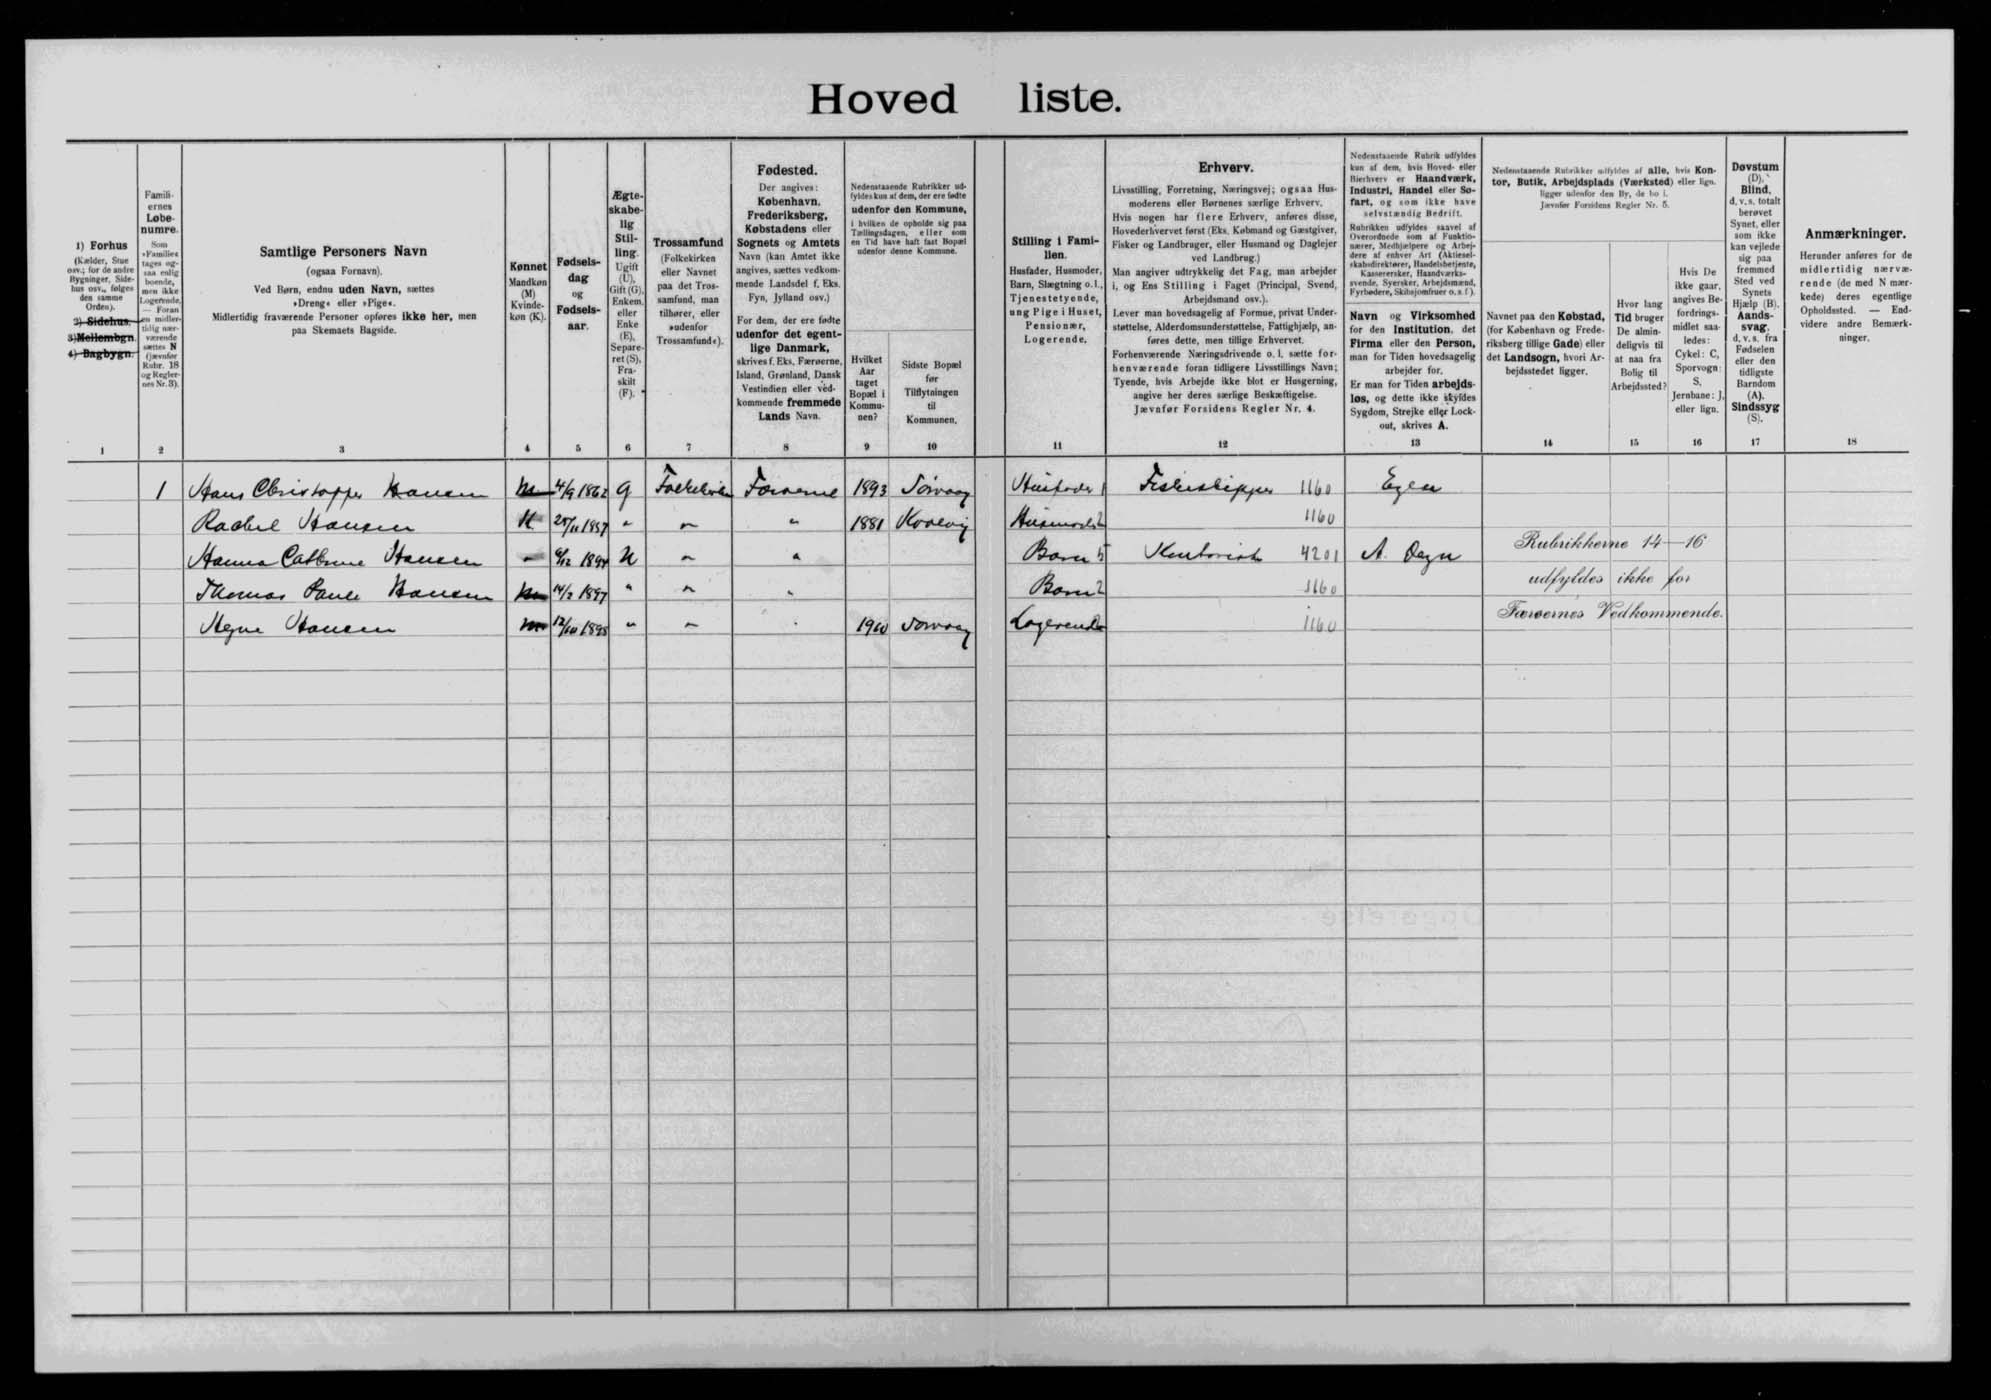 Hoved liste.
1) Forhus
(Kælder, Stue
osv.; for de andre
Bygninger, Side-
hus osv., følges
den samme
Orden).
2) Sidehus.
3) Mellembgn.
4) Bagbygn.
1
Famili-
ernes
Løbe-
numre.
Som
»Familie«
tages og-
saa enlig
boende,
men ikke
Logerende,
— Foran
en midler-
tidig nær-
værende
sættes N
(jævnfør
Rubr. 18
og Regler-
nes Nr. 3).
2
Samtlige Personers Navn
(ogsaa Fornavn).
Ved Børn, endnu uden Navn, sættes
»Dreng« eller »Pige«.
Midlertidig fraværende Personer opføres ikke her, men
paa Skemaets Bagside.
3
Kønnet
Mandkøn
(M)
Kvinde-
køn (K).
4
Fødsels-
dag
og
Fødsels-
aar.
5
Ægte-
skabe-
lig
Stil-
ling.
Ugift
(U),
Gift (G),
Enkem.
eller
Enke
(E),
Separe-
ret (S),
Fra-
skilt
(F).
6
Trossamfund
(Folkekirken
eller Navnet
paa det Tros-
samfund, man
tilhører, eller
»udenfor
Trossamfund«).
7
Fødested.
Der angives:
København,
Frederiksberg,
Købstadens eller
Sognets og Amtets
Navn (kan Amtet ikke
angives, sættes vedkom-
mende Landsdel f. Eks.
Fyn, Jylland osv.)
For dem, der ere fødte
udenfor det egent-
lige Danmark,
skrives f. Eks. Færøerne,
Island, Grønland, Dansk
Vestindien eller ved-
kommende fremmede
Lands Navn.
8
Nedenstaaende Rubrikker ud-
fyldes kun af dem, der ere fødte
udenfor den Kommune,
i hvilken de opholde sig paa
Tællingsdagen, eller som
en Tid have haft fast Bopæl
udenfor denne Kommune.
Hvilket
Aar
taget
Bopæl i
Kommu-
nen?
9
Sidste Bopæl
før
Tilflytningen
til
Kommunen.
10
Stilling i Fami-
lien.
Husfader, Husmoder,
Barn, Slægtning o. l.,
Tjenestetyende,
ung Pige i Huset,
Pensionær,
Logerende.
11
Erhverv.
Livsstilling, Forretning, Næringsvej; ogsaa Hus-
moderens eller Børnenes særlige Erhverv.
Hvis nogen har flere Erhverv, anføres disse,
Hovederhvervet først (Eks. Købmand og Gæstgiver,
Fisker og Landbruger, eller Husmand og Daglejer
ved Landbrug.)
Man angiver udtrykkelig det Fag, man arbejder
i, og Ens Stilling i Faget (Principal, Svend,
Arbejdsmand osv.).
Lever man hovedsagelig af Formue, privat Under-
støttelse, Alderdomsunderstøttelse, Fattighjælp, an-
føres dette, men tillige Erhvervet.
Forhenværende Næringsdrivende o. l. sætte for-
henværende foran tidligere Livsstillings Navn;
Tyende, hvis Arbejde ikke blot er Husgerning,
angive her deres særlige Beskæftigelse.
Jævnfør Forsidens Regler Nr. 4.
12
Nedenstaaende Rubrik udfyldes
kun af dem, hvis Hoved- eller
Bierhverv er Haandværk,
Industri, Handel eller Sø-
fart, og som ikke have
selvstændig Bedrift.
Rubrikken udfyldes saavel af
Overordnede som af Funktio-
nærer, Medhjælpere og Arbej-
dere af enhver Art (Aktiesel-
skabsdirektører, Handelsbetjente,
Kasserersker, Haandværks-
svende, Syersker, Arbejdsmænd,
Fyrbødere, Skibsjomfruer o. s. f.).
Navn og Virksomhed
for den Institution, det
Firma eller den Person,
man for Tiden hovedsagelig
arbejder for.
Er man for Tiden arbejds-
løs, og dette ikke skyldes
Sygdom, Strejke eller Lock-
out, skrives A.
13
Nedenstaaende Rubrikker udfyldes af alle, hvis Kon-
tor, Butik, Arbejdsplads (Værksted) eller lign.
ligger udenfor den By, de bo i.
Jævnfør Forsidens Regler Nr. 5.
Navnet paa den Købstad,
(for København og Frede-
riksberg tillige Gade) eller
det Landsogn, hvori Ar-
bejdsstedet ligger.
14
Hvor lang
Tid bruger
De almin-
deligvis til
at naa fra
Bolig til
Arbejdssted?
15
Hvis De
ikke gaar,
angives Be-
fordrings-
midlet saa-
ledes:
Cykel: C,
Sporvogn:
S,
Jernbane: J,
eller lign.
16
Døvstum
(D),
Blind,
d. v. s. totalt
berøvet
Synet, eller
som ikke
kan vejlede
sig paa
fremmed
Sted ved
Synets
Hjælp (B),
Aands-
svag,
d. v. s. fra
Fødselen
eller den
tidligste
Barndom
(A),
Sindssyg
(S).
17
Anmærkninger.
Herunder anføres for de
midlertidig nærvæ-
rende (de med N mær-
kede) deres egentlige
Opholdssted. — End-
videre andre Bemærk-
ninger.
18
1 Hans Christoffer Hansen M 4/9 1862 G Folkekirken Færøerne 1893 Sørvaag Husfader 1 Fiskeskipper 1160 Egen
Rachel Hansen K 1857 " " " 1881 Husmoder 2 1160
Hanna Cathrine Hansen " 9/12 1894 U " " Barn 5 Kontorist 4201 A. Degn
Thomas Hansen M 14/2 1897 " " " Barn 2 1160
Hansen M 1898 " " " 1910 Sørvaag Logerende 1160
Rubrikkerne 14—16
udfyldes ikke for
Færøernes Vedkommende.